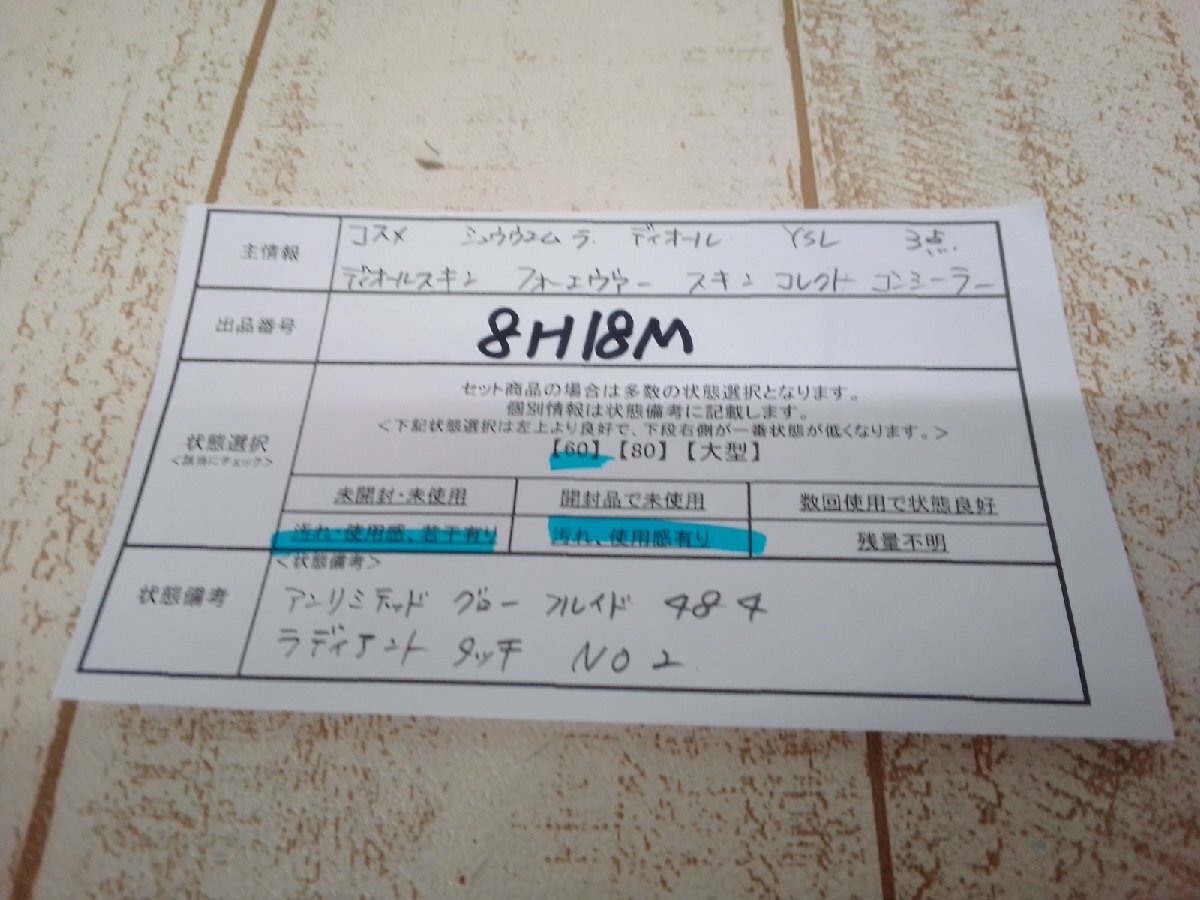 主情報
コスメ シュウウエムラ ディオール YSL 3点
ディオールスキン フォーエヴァー スキン コレクト コンシーラー
出品番号
8H18M
状態選択
<該当にチェック>
セット商品の場合は多数の状態選択となります。
個別情報は状態備考に記載します。
<下記状態選択は左上より良好で、下段右側が一番状態が低くなります。>
【60】【80】【大型】
未開封・未使用 開封品で未使用 数回使用で状態良好
汚れ・使用感、若干有り 汚れ、使用感有り 残量不明
状態備考
<状態備考>
アンリミテッド グロー フルイド 484
ラディアント タッチ NO2